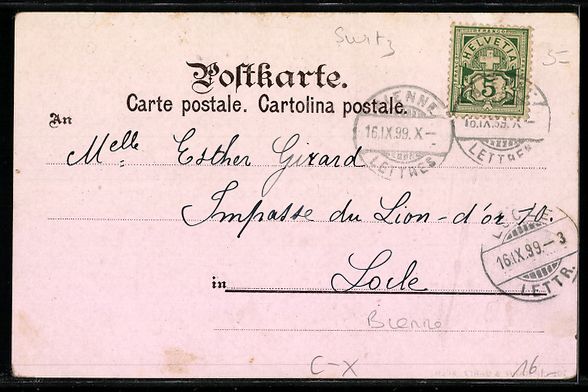 Surtz
5-
FRANCO
HELVETIA
5
Postkarte.
Carte postale. Cartolina postale.
BIENNE
16.IX.99.X-
LETTRES
16.IX.99.X
LETTRES
An
Melle Esther Girard
Impasse du Lion-d'or 10.
LOCLE
16.IX.99-3
LETTR.
in Locle
Bienne
C-X
16